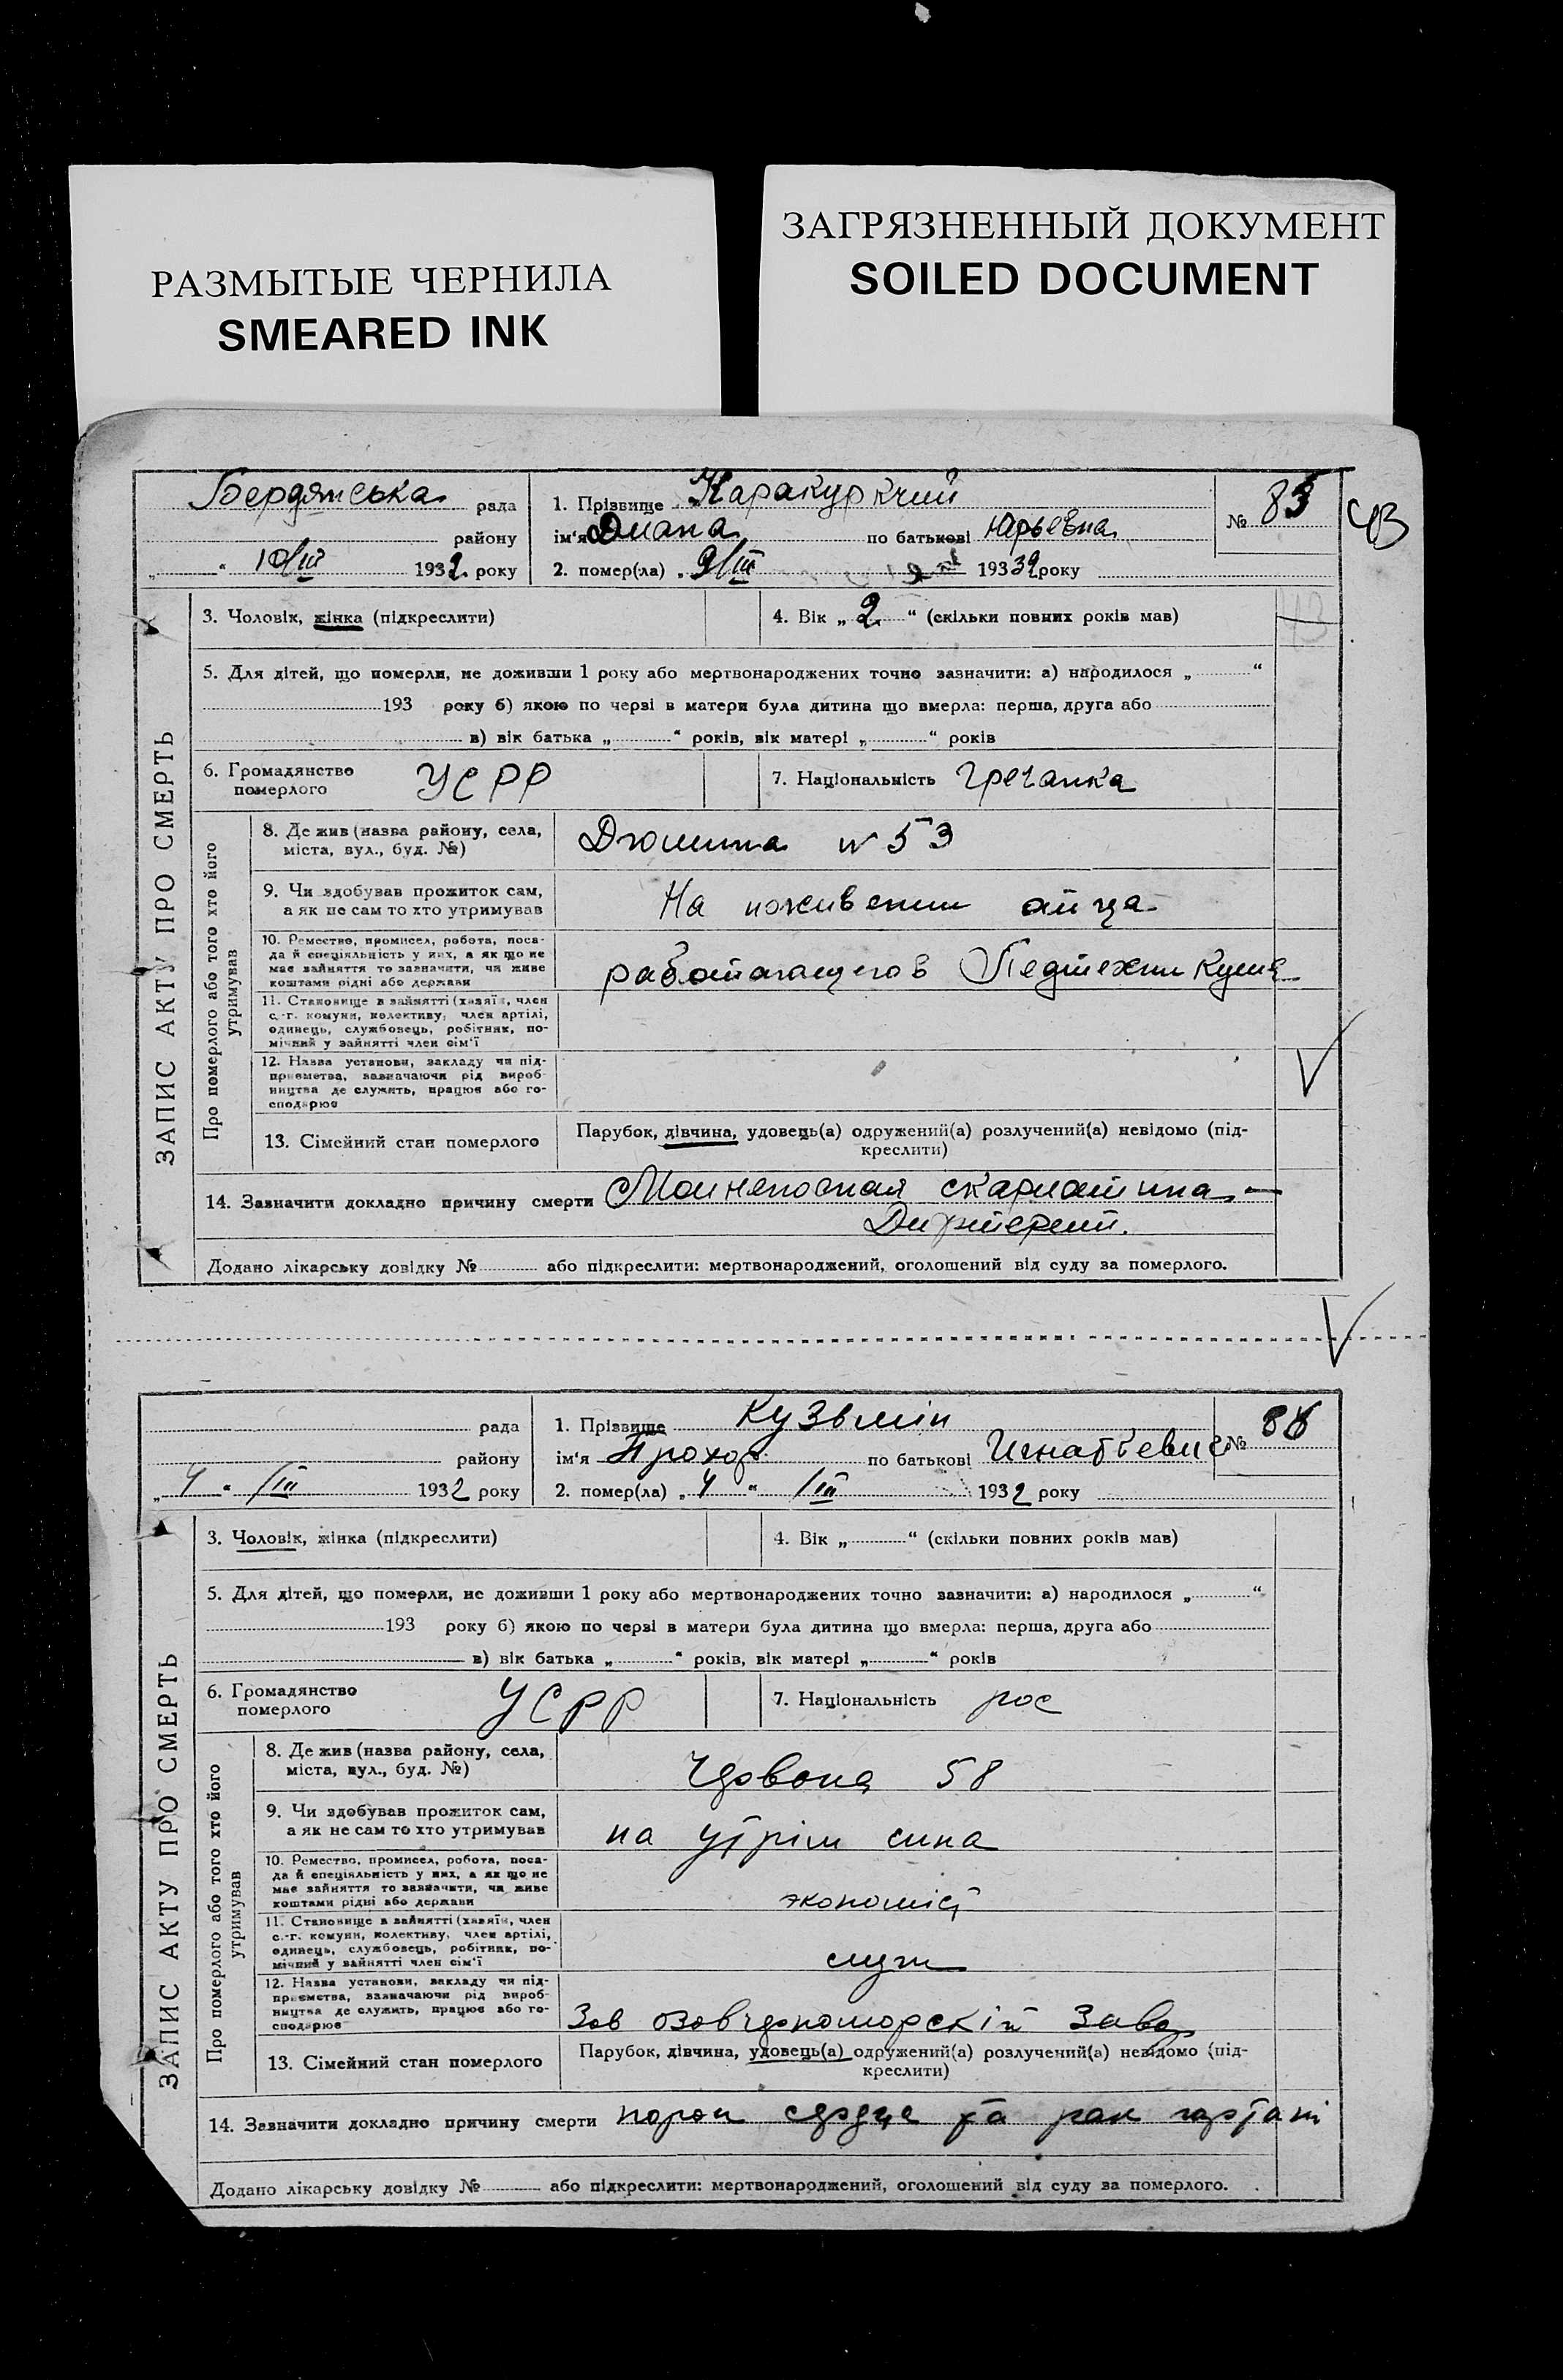 РАЗМЫТЫЕ ЧЕРНИЛА
SMEARED INK
ЗАГРЯЗНЕННЫЙ ДОКУМЕНТ
SOILED DOCUMENT
ЗАПИС АКТУ ПРО СМЕРТЬ
Бердянська рада
району
10/III 1932 року
1. Прізвище Каракуркчий
ім'я Диана по батькові Юрьевна
2. помер(ла) „ 9/III 1932 року
№ 83
43
3. Чоловік, жінка (підкреслити)
4. Вік „ 2 “ (скільки повних років мав)
5. Для дітей, що померли, не доживши 1 року або мертвонароджених точно зазначити: а) народилося „ “
193 року б) якою по черзі в матери була дитина що вмерла: перша, друга або
в) вік батька „ “ років, вік матері „ “ років
6. Громадянство померлого УСРР
7. Національність гречанка
Про померлого або того хто його утримував
8. Де жив (назва району, села,
міста, вул., буд. №)
Дюмина № 53
9. Чи здобував прожиток сам,
а як не сам то хто утримував
На иживении отца
10. Ремество, промисел, робота, поса-
да й спеціяльність у них, а як що не
має зайняття то зазначити, чи живе
коштами рідні або держави
работающего в Педтехникуме
11. Становище в зайнятті (хазяїн, член
с.-г. комуни, колективу, член артілі,
одинець, службовець, робітник, по-
мічний у зайнятті член сім'ї
12. Назва установи, закладу чи під-
приємства, зазначаючи рід вироб-
ництва де служить, працює або го-
сподарює
13. Сімейний стан померлого
Парубок, дівчина, удовець(а) одружений(а) розлучений(а) невідомо (під-
креслити)
14. Зазначити докладно причину смерти скарлатина —
Дифтерит.
Додано лікарську довідку № або підкреслити: мертвонароджений, оголошений від суду за померлого.
ЗАПИС АКТУ ПРО СМЕРТЬ
рада
району
„ 4 “ /III 1932 року
1. Прізвище Кузьмін
ім'я Прохор по батькові Игнатьевич
2. помер(ла) „ 4 “ /III 1932 року
№
3. Чоловік, жінка (підкреслити)
4. Вік „ “ (скільки повних років мав)
5. Для дітей, що померли, не доживши 1 року або мертвонароджених точно зазначити: а) народилося „ “
193 року б) якою по черзі в матери була дитина що вмерла: перша, друга або
в) вік батька „ “ років, вік матері „ “ років
6. Громадянство померлого УСРР
7. Національність рос
Про померлого або того хто його утримував
8. Де жив (назва району, села,
міста, вул., буд. №)
Червона 58
9. Чи здобував прожиток сам,
а як не сам то хто утримував
на утрім сина
10. Ремество, промисел, робота, поса-
да й спеціяльність у них, а як що не
має зайняття то зазначити, чи живе
коштами рідні або держави
экономіст
11. Становище в зайнятті (хазяїн, член
с.-г. комуни, колективу, член артілі,
одинець, службовець, робітник, по-
мічний у зайнятті член сім'ї
служ
12. Назва установи, закладу чи під-
приємства, зазначаючи рід вироб-
ництва де служить, працює або го-
сподарює
Завод
13. Сімейний стан померлого
Парубок, дівчина, удовець(а) одружений(а) розлучений(а) невідомо (під-
креслити)
14. Зазначити докладно причину смерти порок сердце та рак гортані
Додано лікарську довідку № або підкреслити: мертвонароджений, оголошений від суду за померлого.